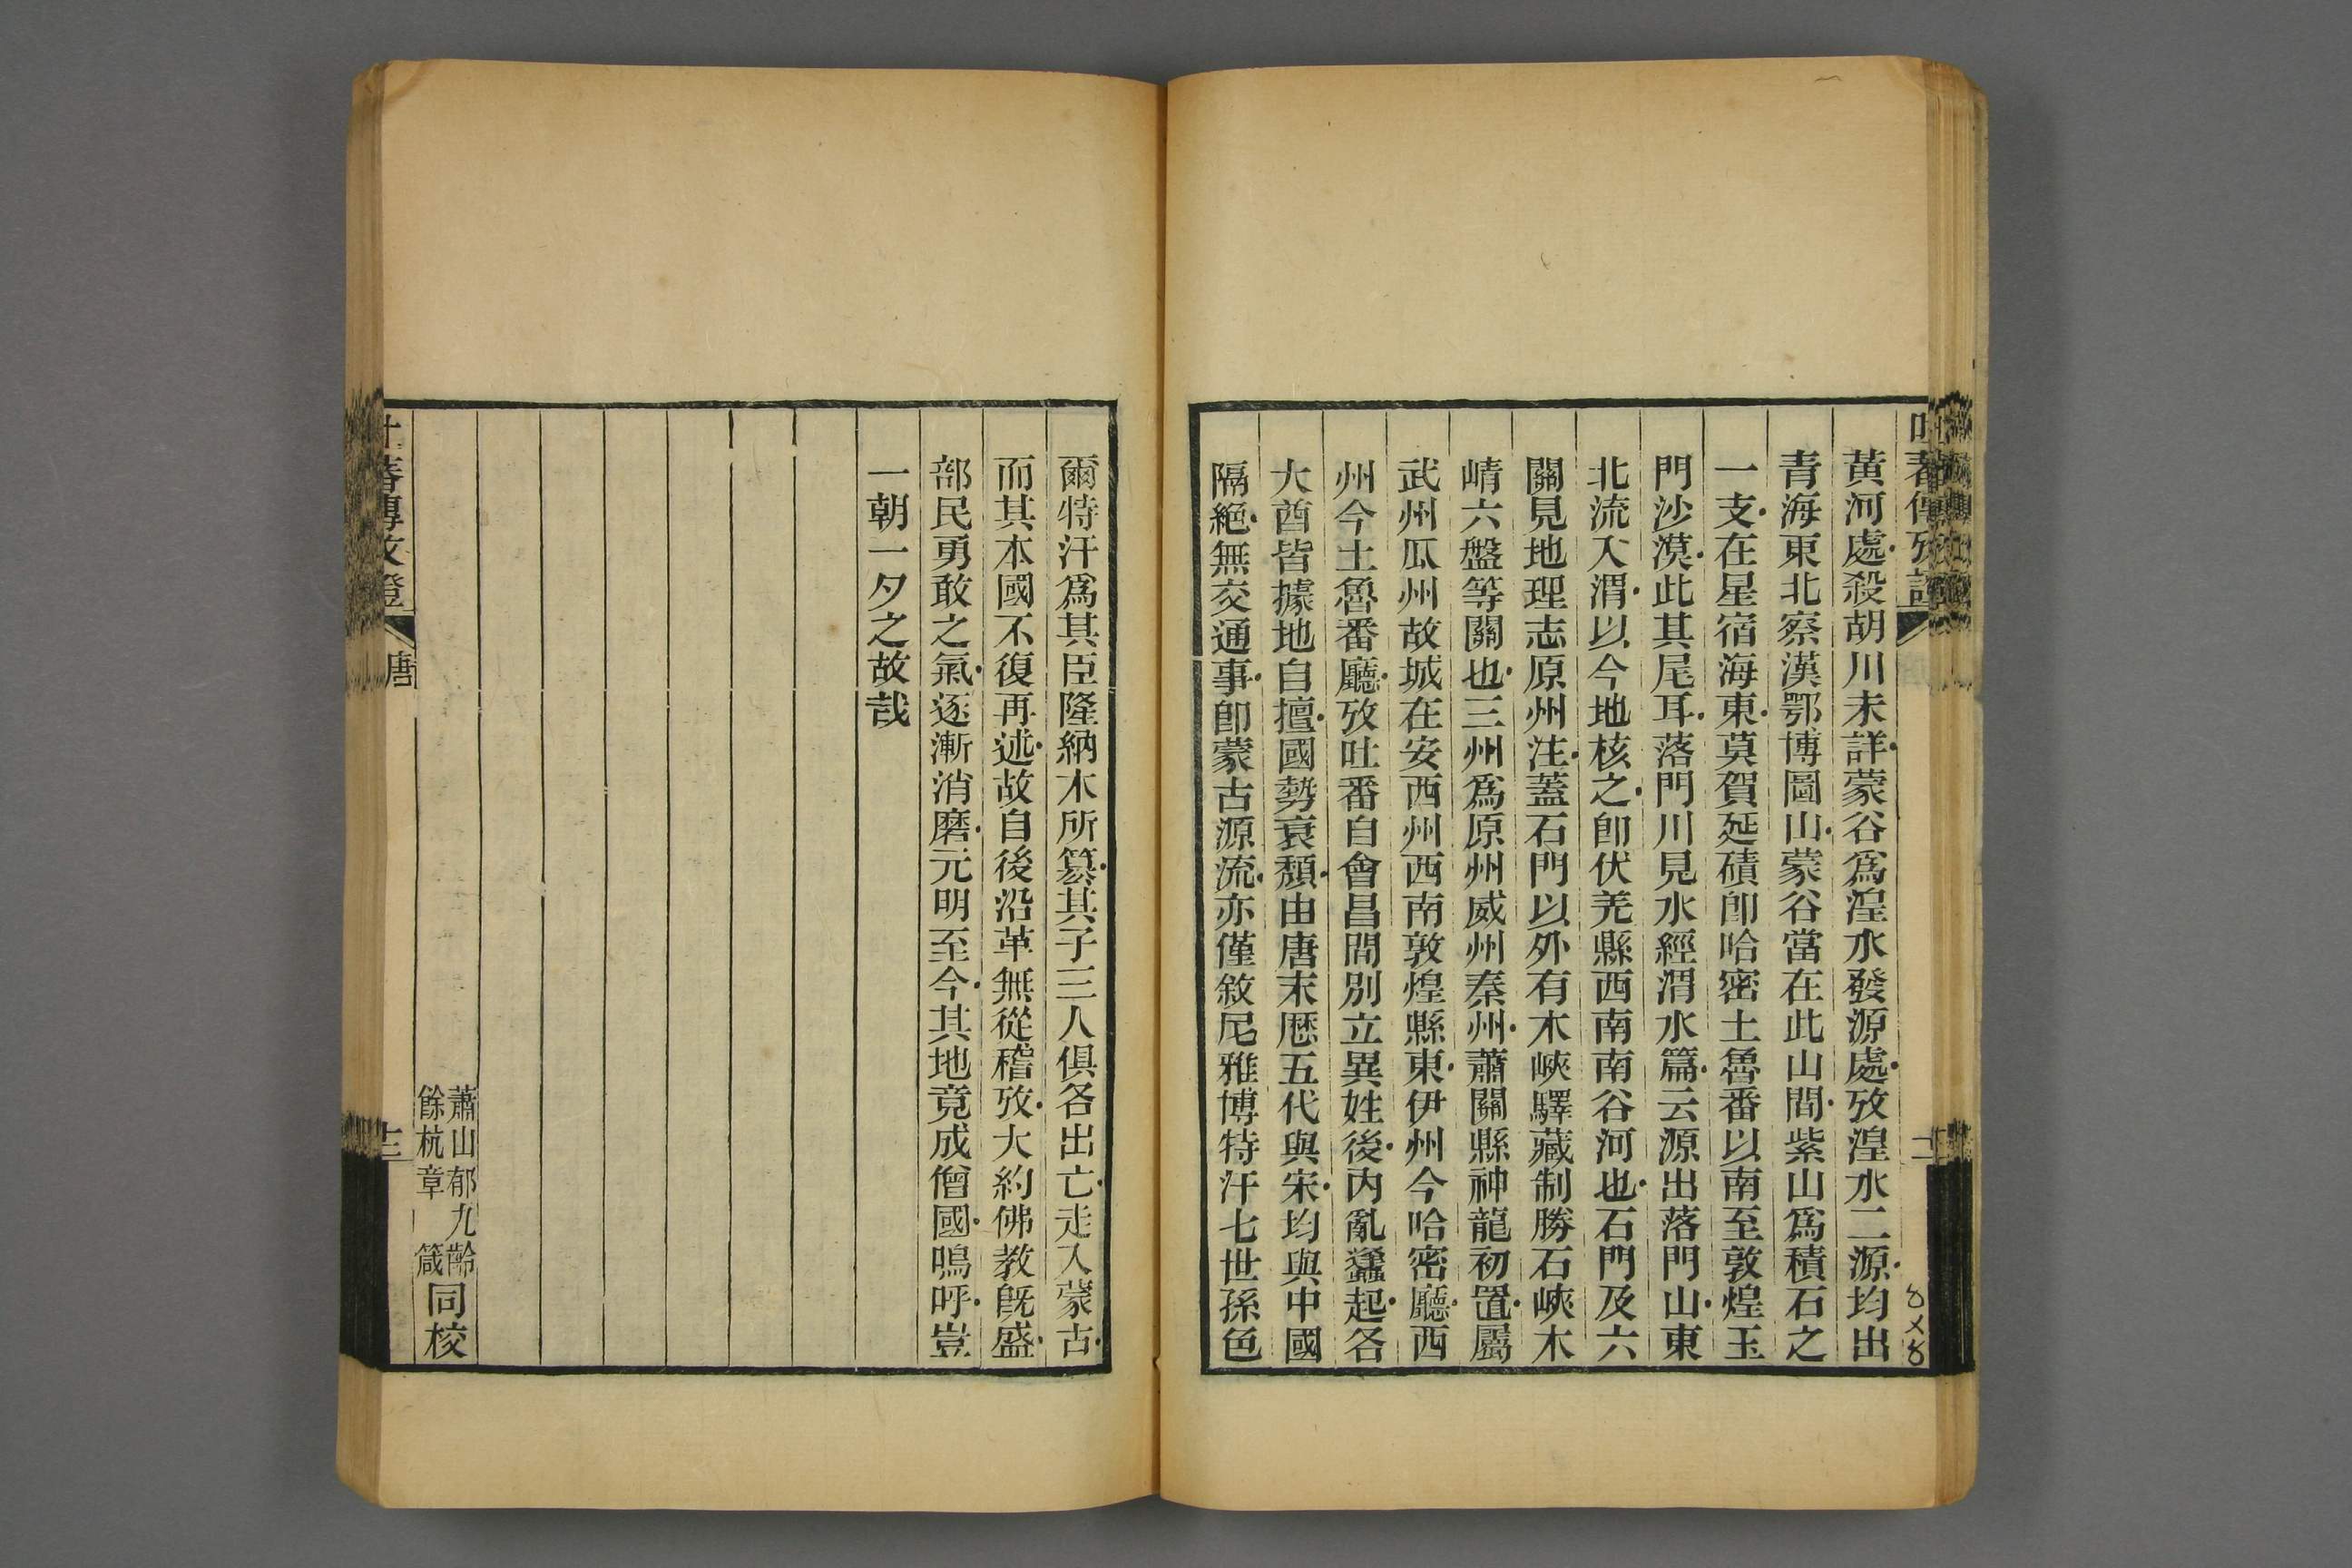 黃河處殺胡川未詳蒙谷爲湟水發源處攷湟水二源均出
青海東北察漢鄂博圖山蒙谷當在此山間紫山爲積石之
一支在星宿海東莫賀延磧卽哈密土魯番以南至敦煌玉
門沙漠此其尾耳落門川見水經渭水篇云源出落門山東
北流入渭以今地核之卽伏羌縣西南南谷河也石門及六
關見地理志原州注蓋石門以外有木峽驛藏制勝石峽木
崝六盤等關也三州爲原州威州秦州蕭關縣神龍初置屬
武州瓜州故城在安西州西南敦煌縣東伊州今哈密廳西
州今土魯番廳攷吐番自會昌間別立異姓後內亂蠭起各
大酋皆據地自擅國勢衰頹由唐末厯五代與宋均與中國
隔絕無交通事卽蒙古源流亦僅敘尼雅博特汗七世孫色
爾特汗爲其臣隆納木所簒其子三人俱各出亡走入蒙古
而其本國不復再述故自後沿革無從稽攷大約佛教旣盛
部民勇敢之氣逐漸消磨元明至今其地竟成僧國嗚呼豈
一朝一夕之故哉
蕭山郁九齡
餘杭章箴
同校
唐